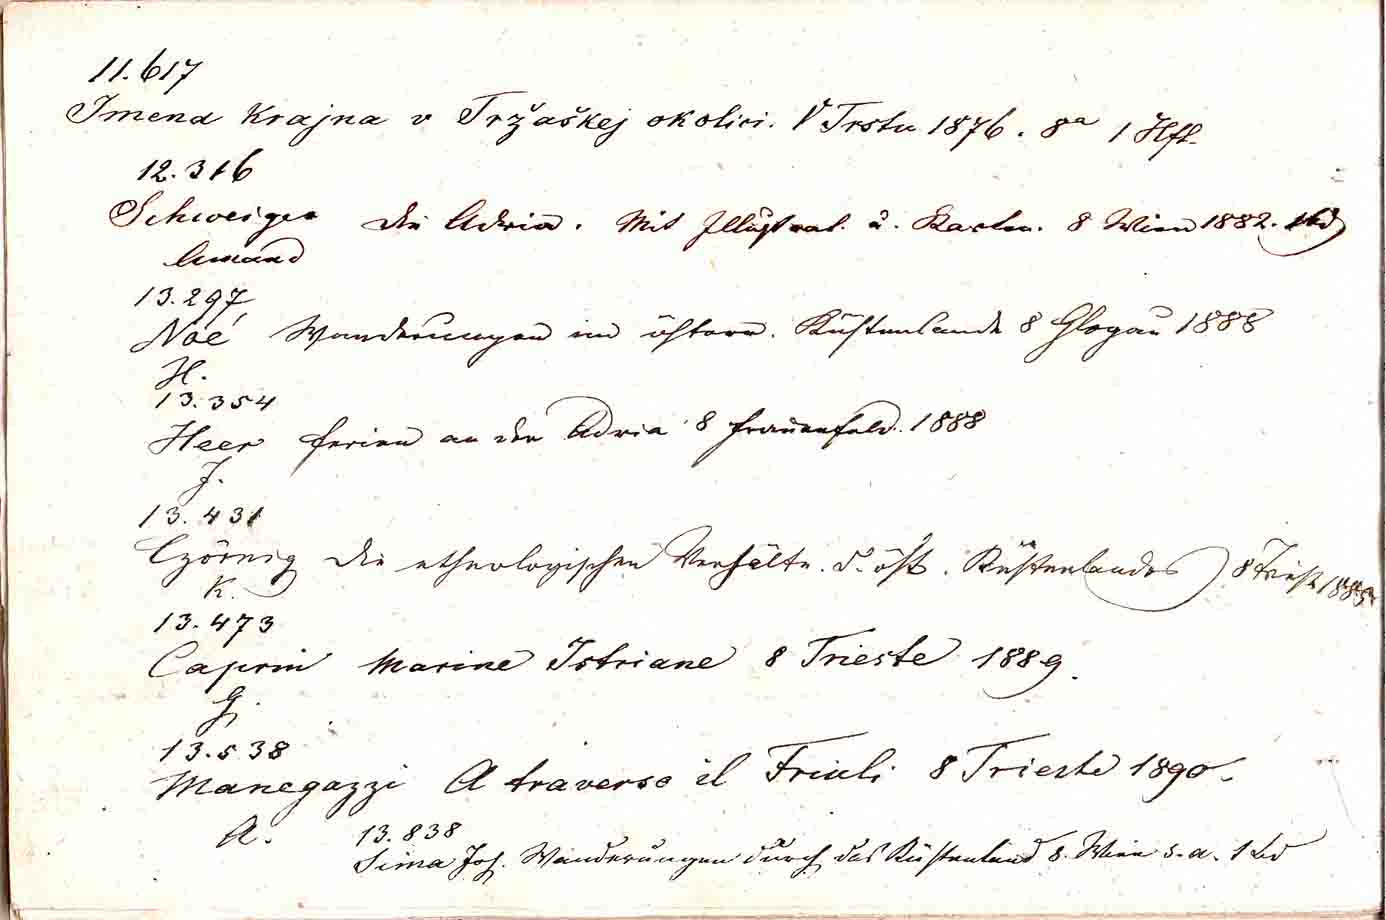 11.617
Imena Krajna v Tržaškej okolici. V Trstu 1876. 8ᵃ 1 Hft.
12.316
Schweiger die Adria. Mit Illustrat. u. Karten. 8 Wien 1882. 1 Bd
Amand
13.297
Noé Wanderungen im österr. Küstenlande 8 Glogau 1888
H.
13.354
Heer Ferien an der Adria 8 Frauenfeld. 1888
J.
13.431
Czörnig die ethnologischen Verhältn. d. öst. Küstenlandes 8 Triest 1885
K.
13.473
Caprin Marine Istriane 8 Trieste 1889.
G.
13.538
Manegazzi A traverso il Friuli 8 Trieste 1890.
A. 13.838
Sima Joh. Wanderungen durch das Küstenland 8. Wien s.a. 1 Bd